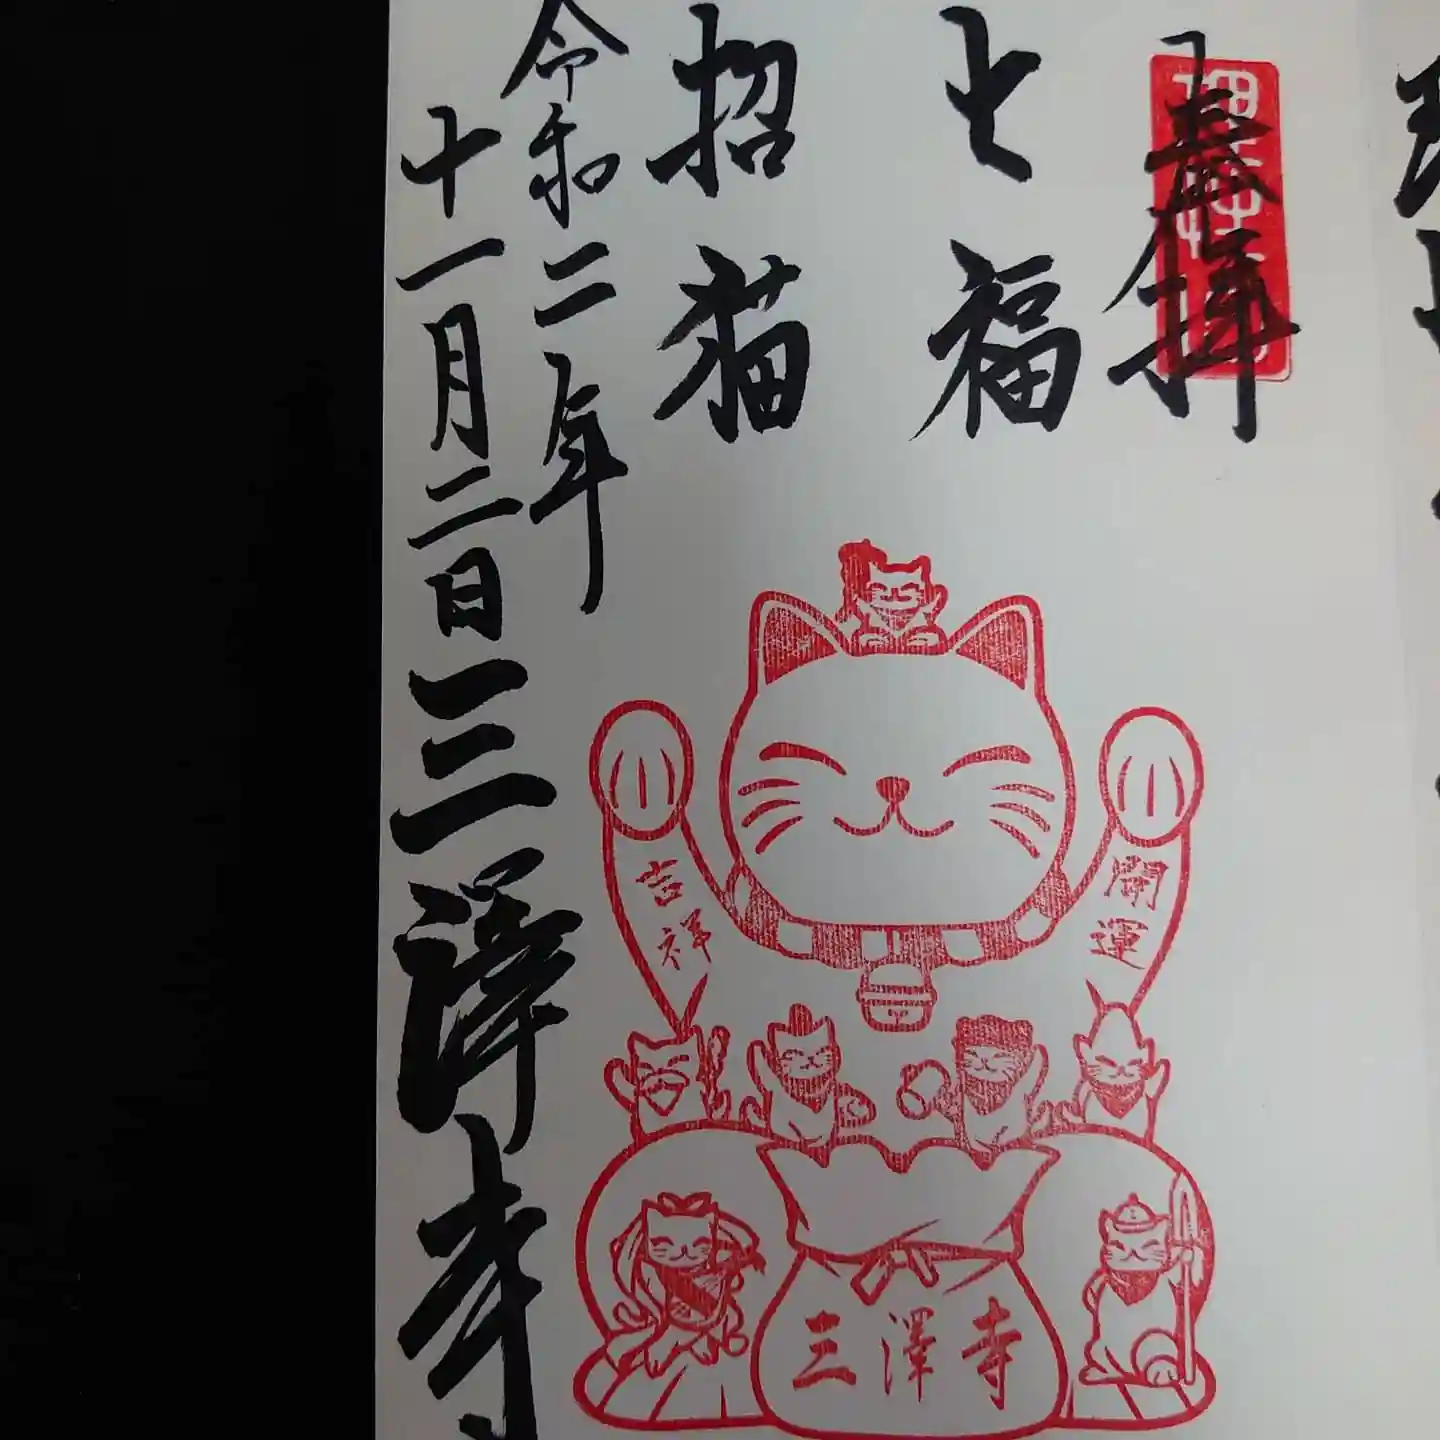 奉拝
七福
招猫
令和二年
十一月二日
三澤寺
開運
吉祥
三澤寺